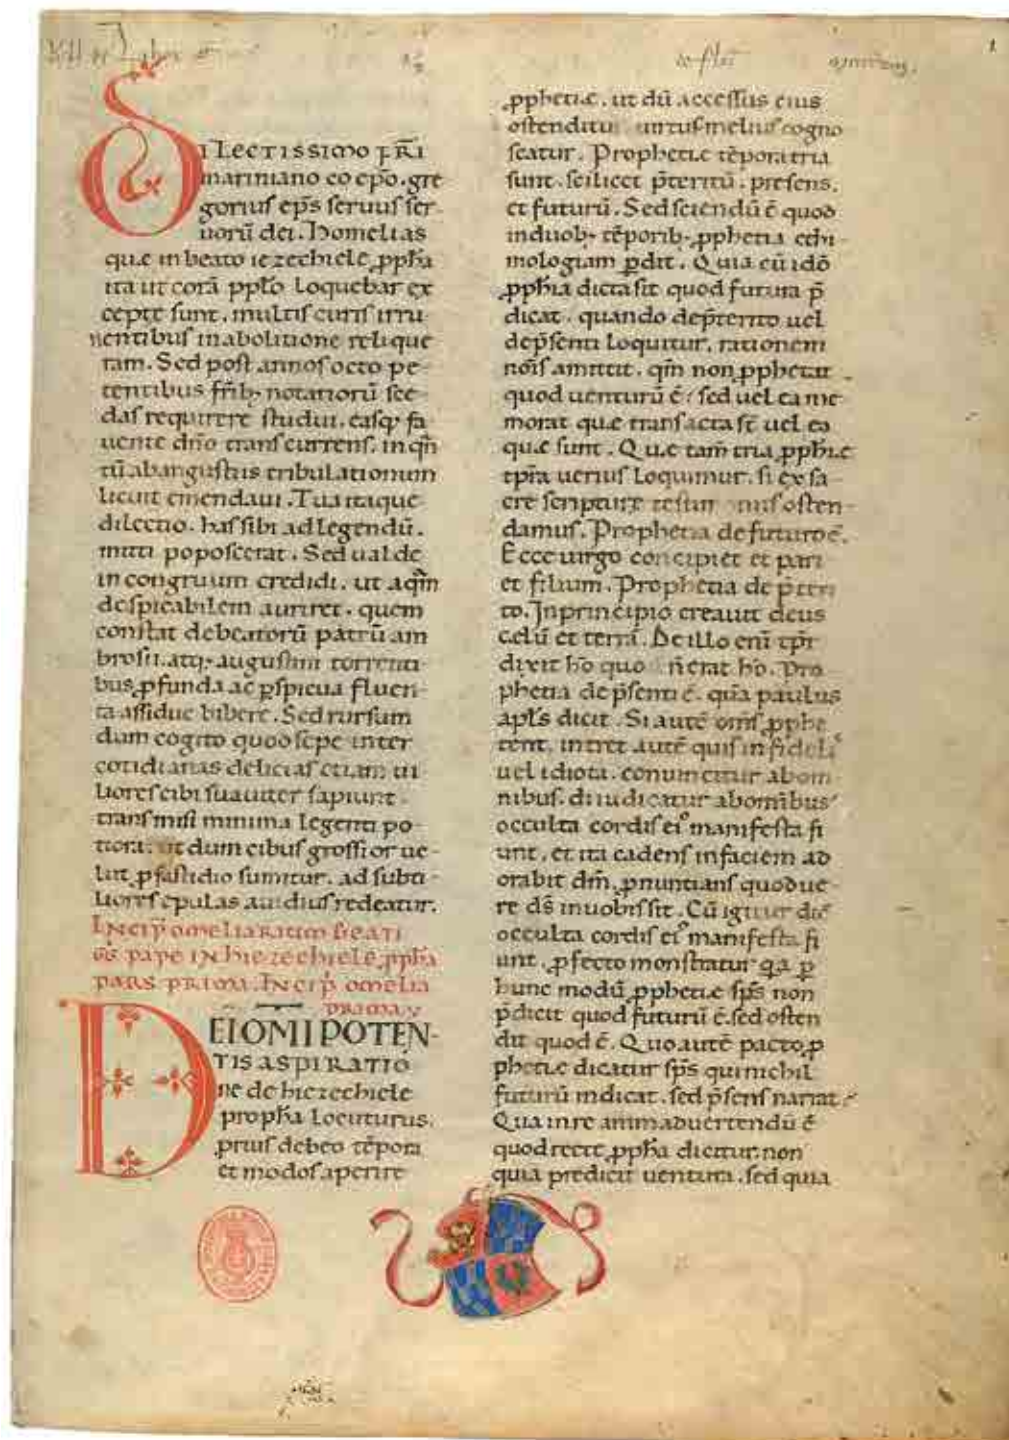 Dilectissimo fr̄i
mariniano co ep̄o. gre
gorius ep̄s seruus ser
uorū dei. Homelias
que in beato iezechiele ꝓph̄a
ita ut corā pplo loquebar ex
cepte sunt. multis curis irru
entibus in abolitione relique
ram. Sed post annos octo pe
tentibus fr̄ib; notariorū sce
das requirere studui. easq; fa
uente dn̄o transcurrens. inqn̄
tū ab angustiis tribulationum
licuit emendaui. Tua itaque
dilectio. has sibi ad legendū.
mitti poposcerat. Sed ualde
in congruum credidi. ut aqm̄
despicabilem auriret. quem
constat de beatorū patrū am
brosii. atq; augustini torrenti
bus ꝓfunda ac ꝑspicua fluen
ta assidue bibere. Sed rursum
dum cogito quod sepe inter
cotidianas delicias etiam ui
liores cibi suauiter sapiunt.
transmisi minima legenti po
tiora. ut dum cibus grossior ue
lut ꝓ fastidio sumitur. ad subti
liores epulas auidius redeatur.
Incip̄ omeliarum beati
GG pape in hiezechiele ꝓph̄a
pars prima. Incip̄ omelia
prima
DEI OM̄IPOTEN-
TIS ASPIRATIO
ne de hiezechiele
proph̄a locuturus.
prius debeo tēpora
et modos aperire
ꝓphetie. ut dū accessus eius
ostenditur uirtus melius cogno
scatur. Prophetie tēpora tria
sunt. scilicet p̄teritū. presens.
et futurū. Sed sciendū ē quod
in duob; tēporib; ꝓphetia ethi
mologiam ꝑdit. Quia cū idō
ꝓph̄ia dicta sit quod futura p̄
dicat. quando de p̄terito uel
de p̄senti loquitur. rationem
nōis amittit. qm̄ non ꝓphetat
quod uenturū ē. sed uel ea me
morat que transacta st̄ uel ea
que sunt. Que tam̄ tria ꝓph̄ie
tp̄ra uerius loquimur. si ex sa
cre scripture testim nus osten
damus. Prophetia de futuro ē.
Ecce uirgo concipiet et pari
et filium. Prophetia de p̄teri
to. In principio creauit deus
celū et terrā. De illo eni tp̄r
dixit hō quo n̄ erat hō. Pro
phetia de p̄senti ē. qn̄a paulus
apl̄s dicit. Si autē om̄s ꝓphe
tent. intret autē quis infideli
uel idiota. conuincitur ab om
nibus. diiudicatur ab omībus
occulta cordis ei' manifesta fi
unt. et ita cadens in faciem ad
orabit dm̄. ꝓnuntians quod ue
re ds̄ in uobis sit. Cū igitur
occulta cordis ei' manifesta fi
unt. ꝓfecto monstratur qa ꝑ
hunc modū ꝓphetie sp̄s non
p̄dicit quod futurū ē. sed osten
dit quod ē. Quo autē pacto ꝓ
phetie dicatur sp̄s qui nichil
futurū indicat. sed p̄sens narrat
Qua in re animaduertendū ē
quod recte ꝓph̄a dicitur. non
quia predicit uentura. sed quia